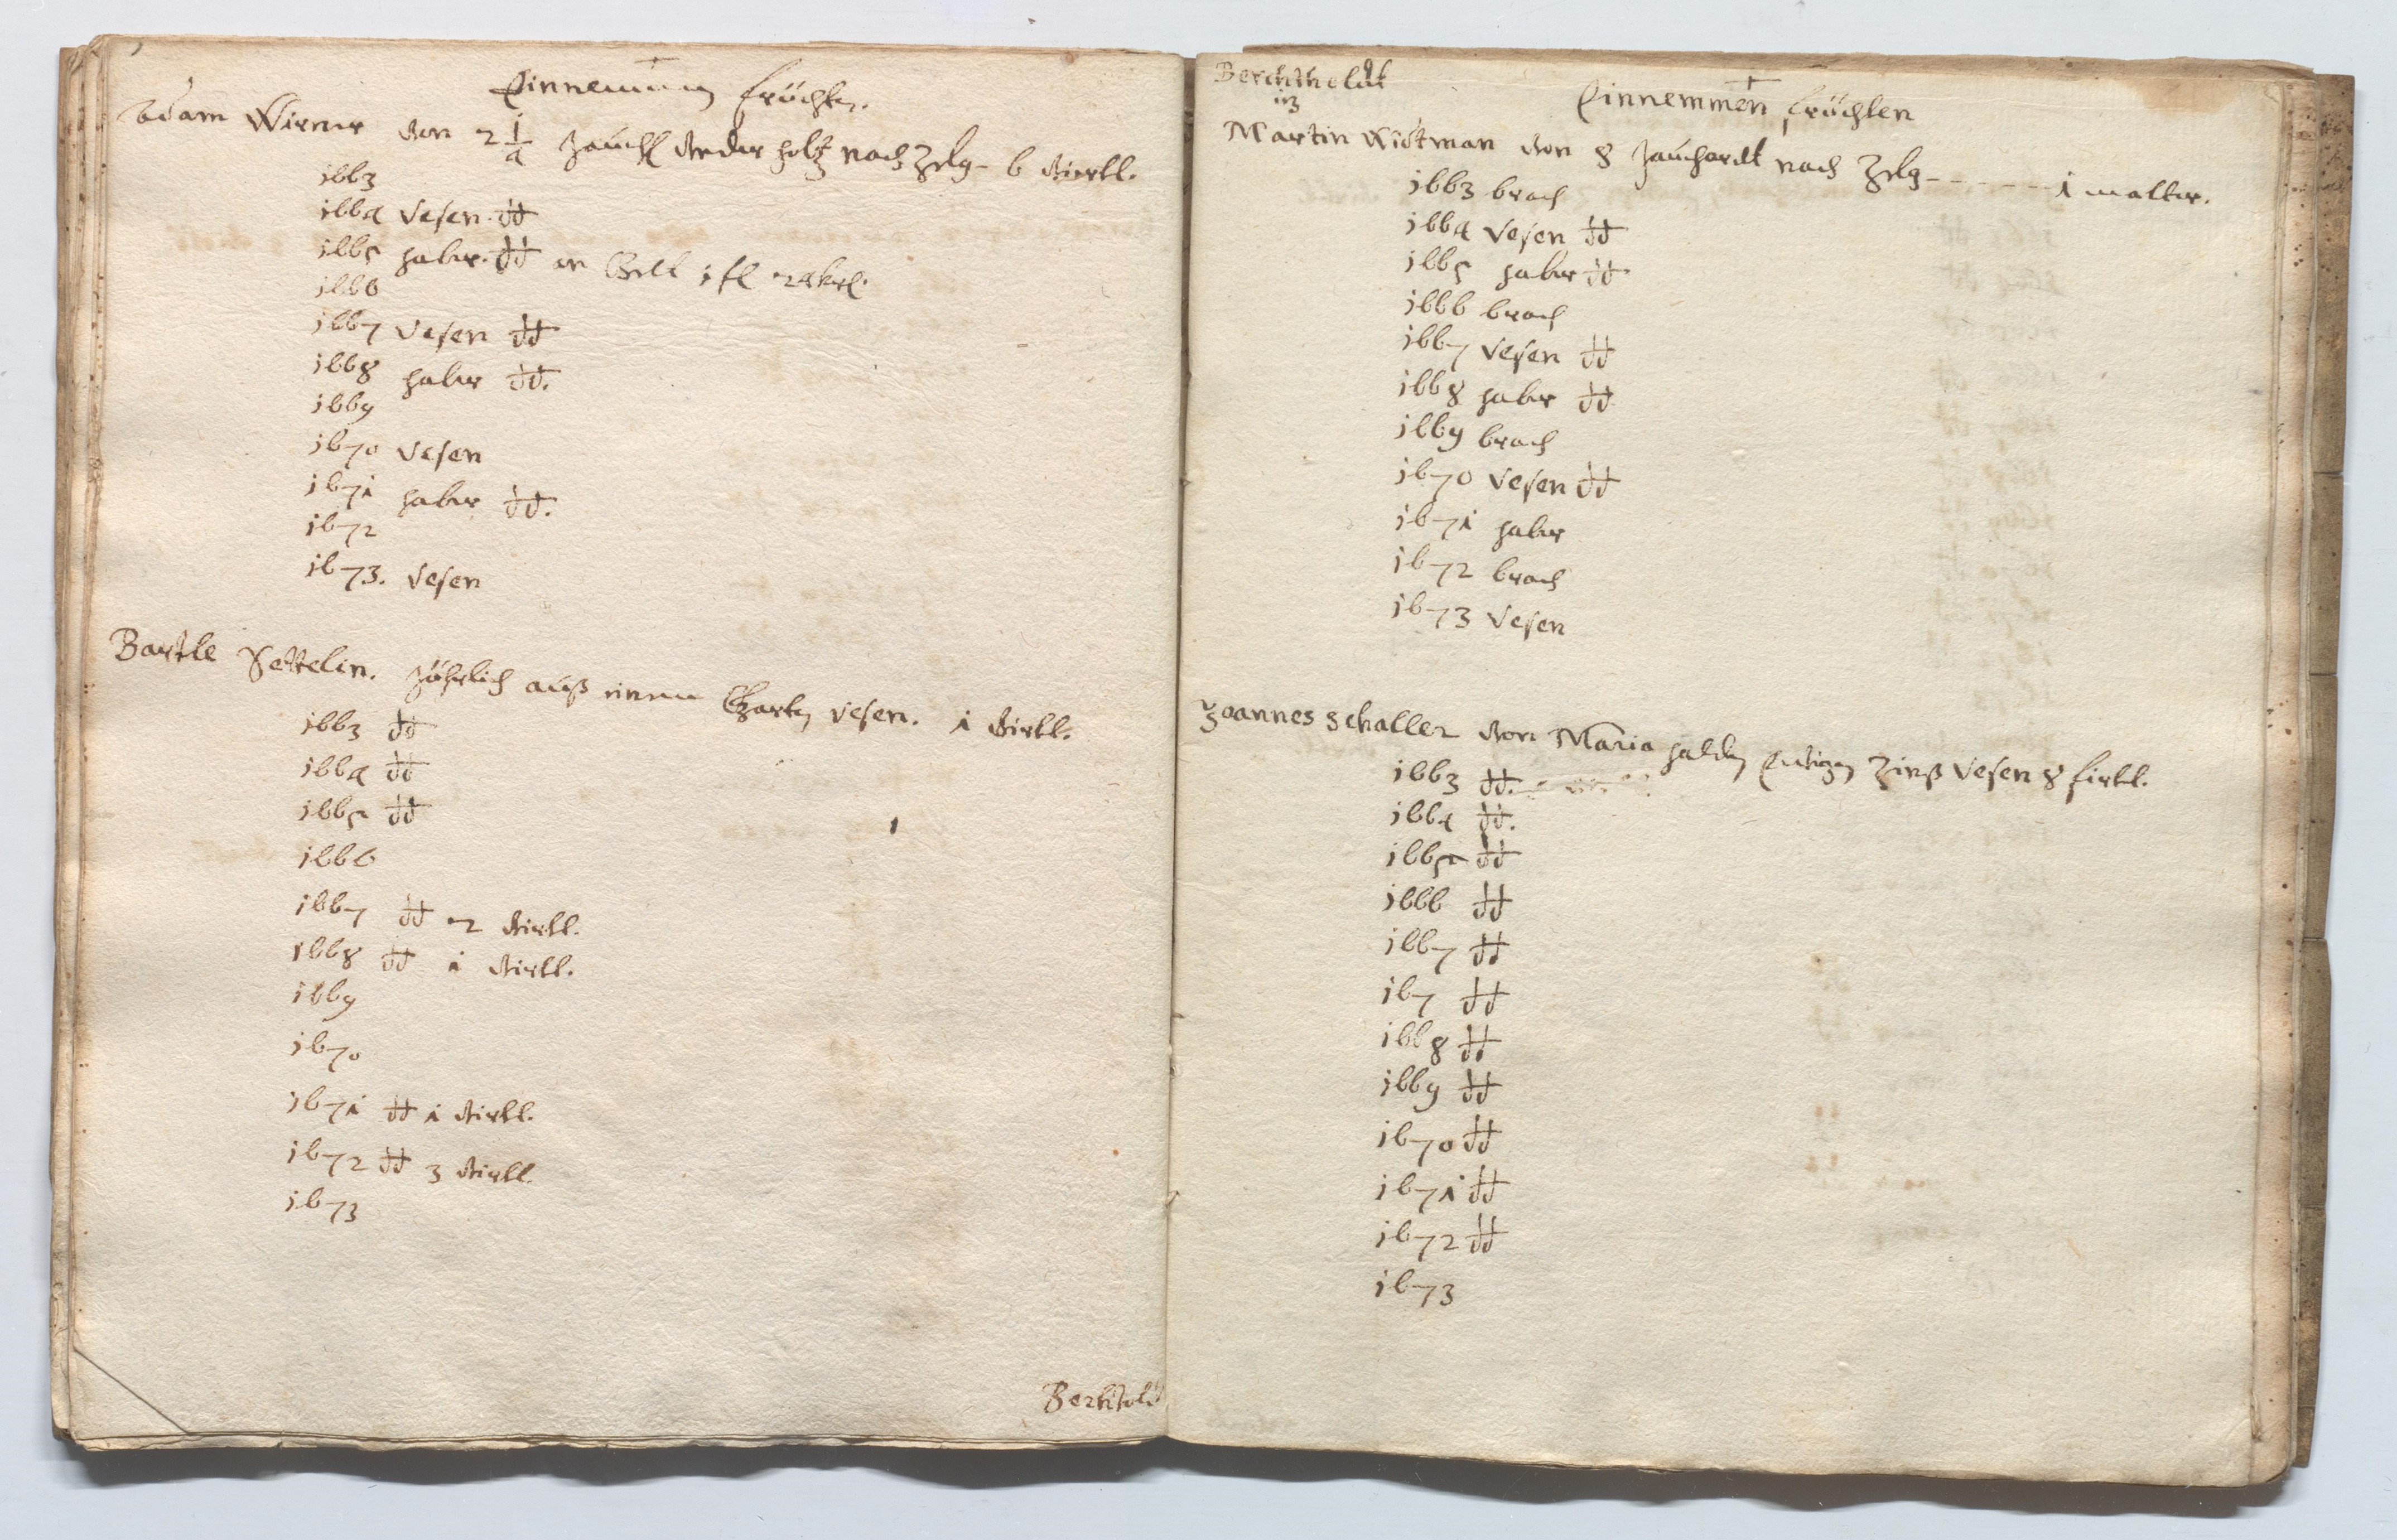 Einnemung früchten.
Adam Wirner von 2 1/4 Jauch vnder holtz nach Zelg - 6 virtl.
1663
1664 Vesen. dt
1665 haber. dt an Gelt 1 fl 24 kr.
1666
1667 Vesen dt
1668 haber dt.
1669
1670 Vesen
1671 haber dt.
1672
1673. Vesen
Bartle Settelin. Jährlich auß einem Garten vesen. 1 virtl.
1663 dt
1664 dt
1665 dt
1666
1667 dt 2 virtl.
1668 dt 1 virtl.
1669
1670
1671 dt 1 virtl.
1672 dt 3 virtl.
1673
Berhtold
Berchtholdt
Einnemmen früchten
Martin Widtman von 8 Jauchardt nach Zelg - - - - - - 1 malter.
1663 brach
1664 Vesen dt
1665 haber dt
1666 brach
1667 Vesen dt
1668 haber dt
1669 brach
1670 Vesen dt
1671 haber
1672 brach
1673 Vesen
Joannes Schaller von Maria halden Ewigen Zinß Vesen 8 firtl.
1663 dt.
1664 dt.
1665 dt
1666 dt
1667 dt
167 dt
1668 dt
1669 dt
1670 dt
1671 dt
1672 dt
1673